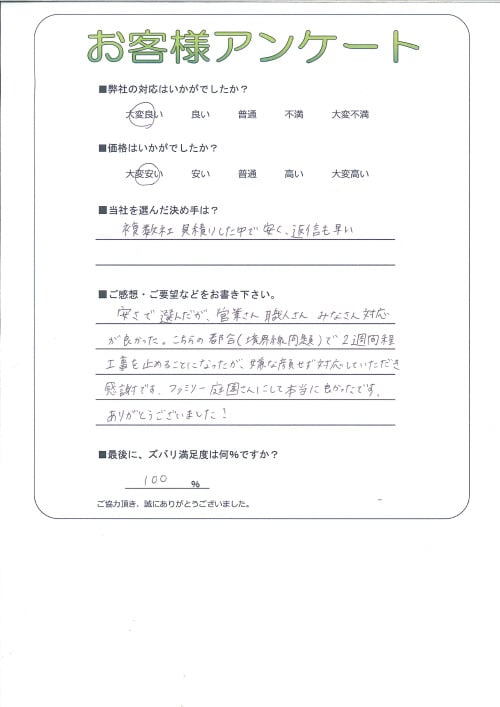 お客様アンケート
■弊社の対応はいかがでしたか？
大変良い 良い 普通 不満 大変不満
■価格はいかがでしたか？
大変安い 安い 普通 高い 大変高い
■当社を選んだ決め手は？
複数社 見積りした中で安く、返信も早い
■ご感想・ご要望などをお書き下さい。
安さで選んだが、営業さん 職人さん みなさん対応
が良かった。こちらの都合(境界線問題)で2週間程
工事を止めることになったが、嫌な顔せず対応していただき
感謝です。ファミリー庭園さんにして本当に良かったです。
ありがとうございました！
■最後に、ズバリ満足度は何％ですか？
100 ％
ご協力頂き、誠にありがとうございました。